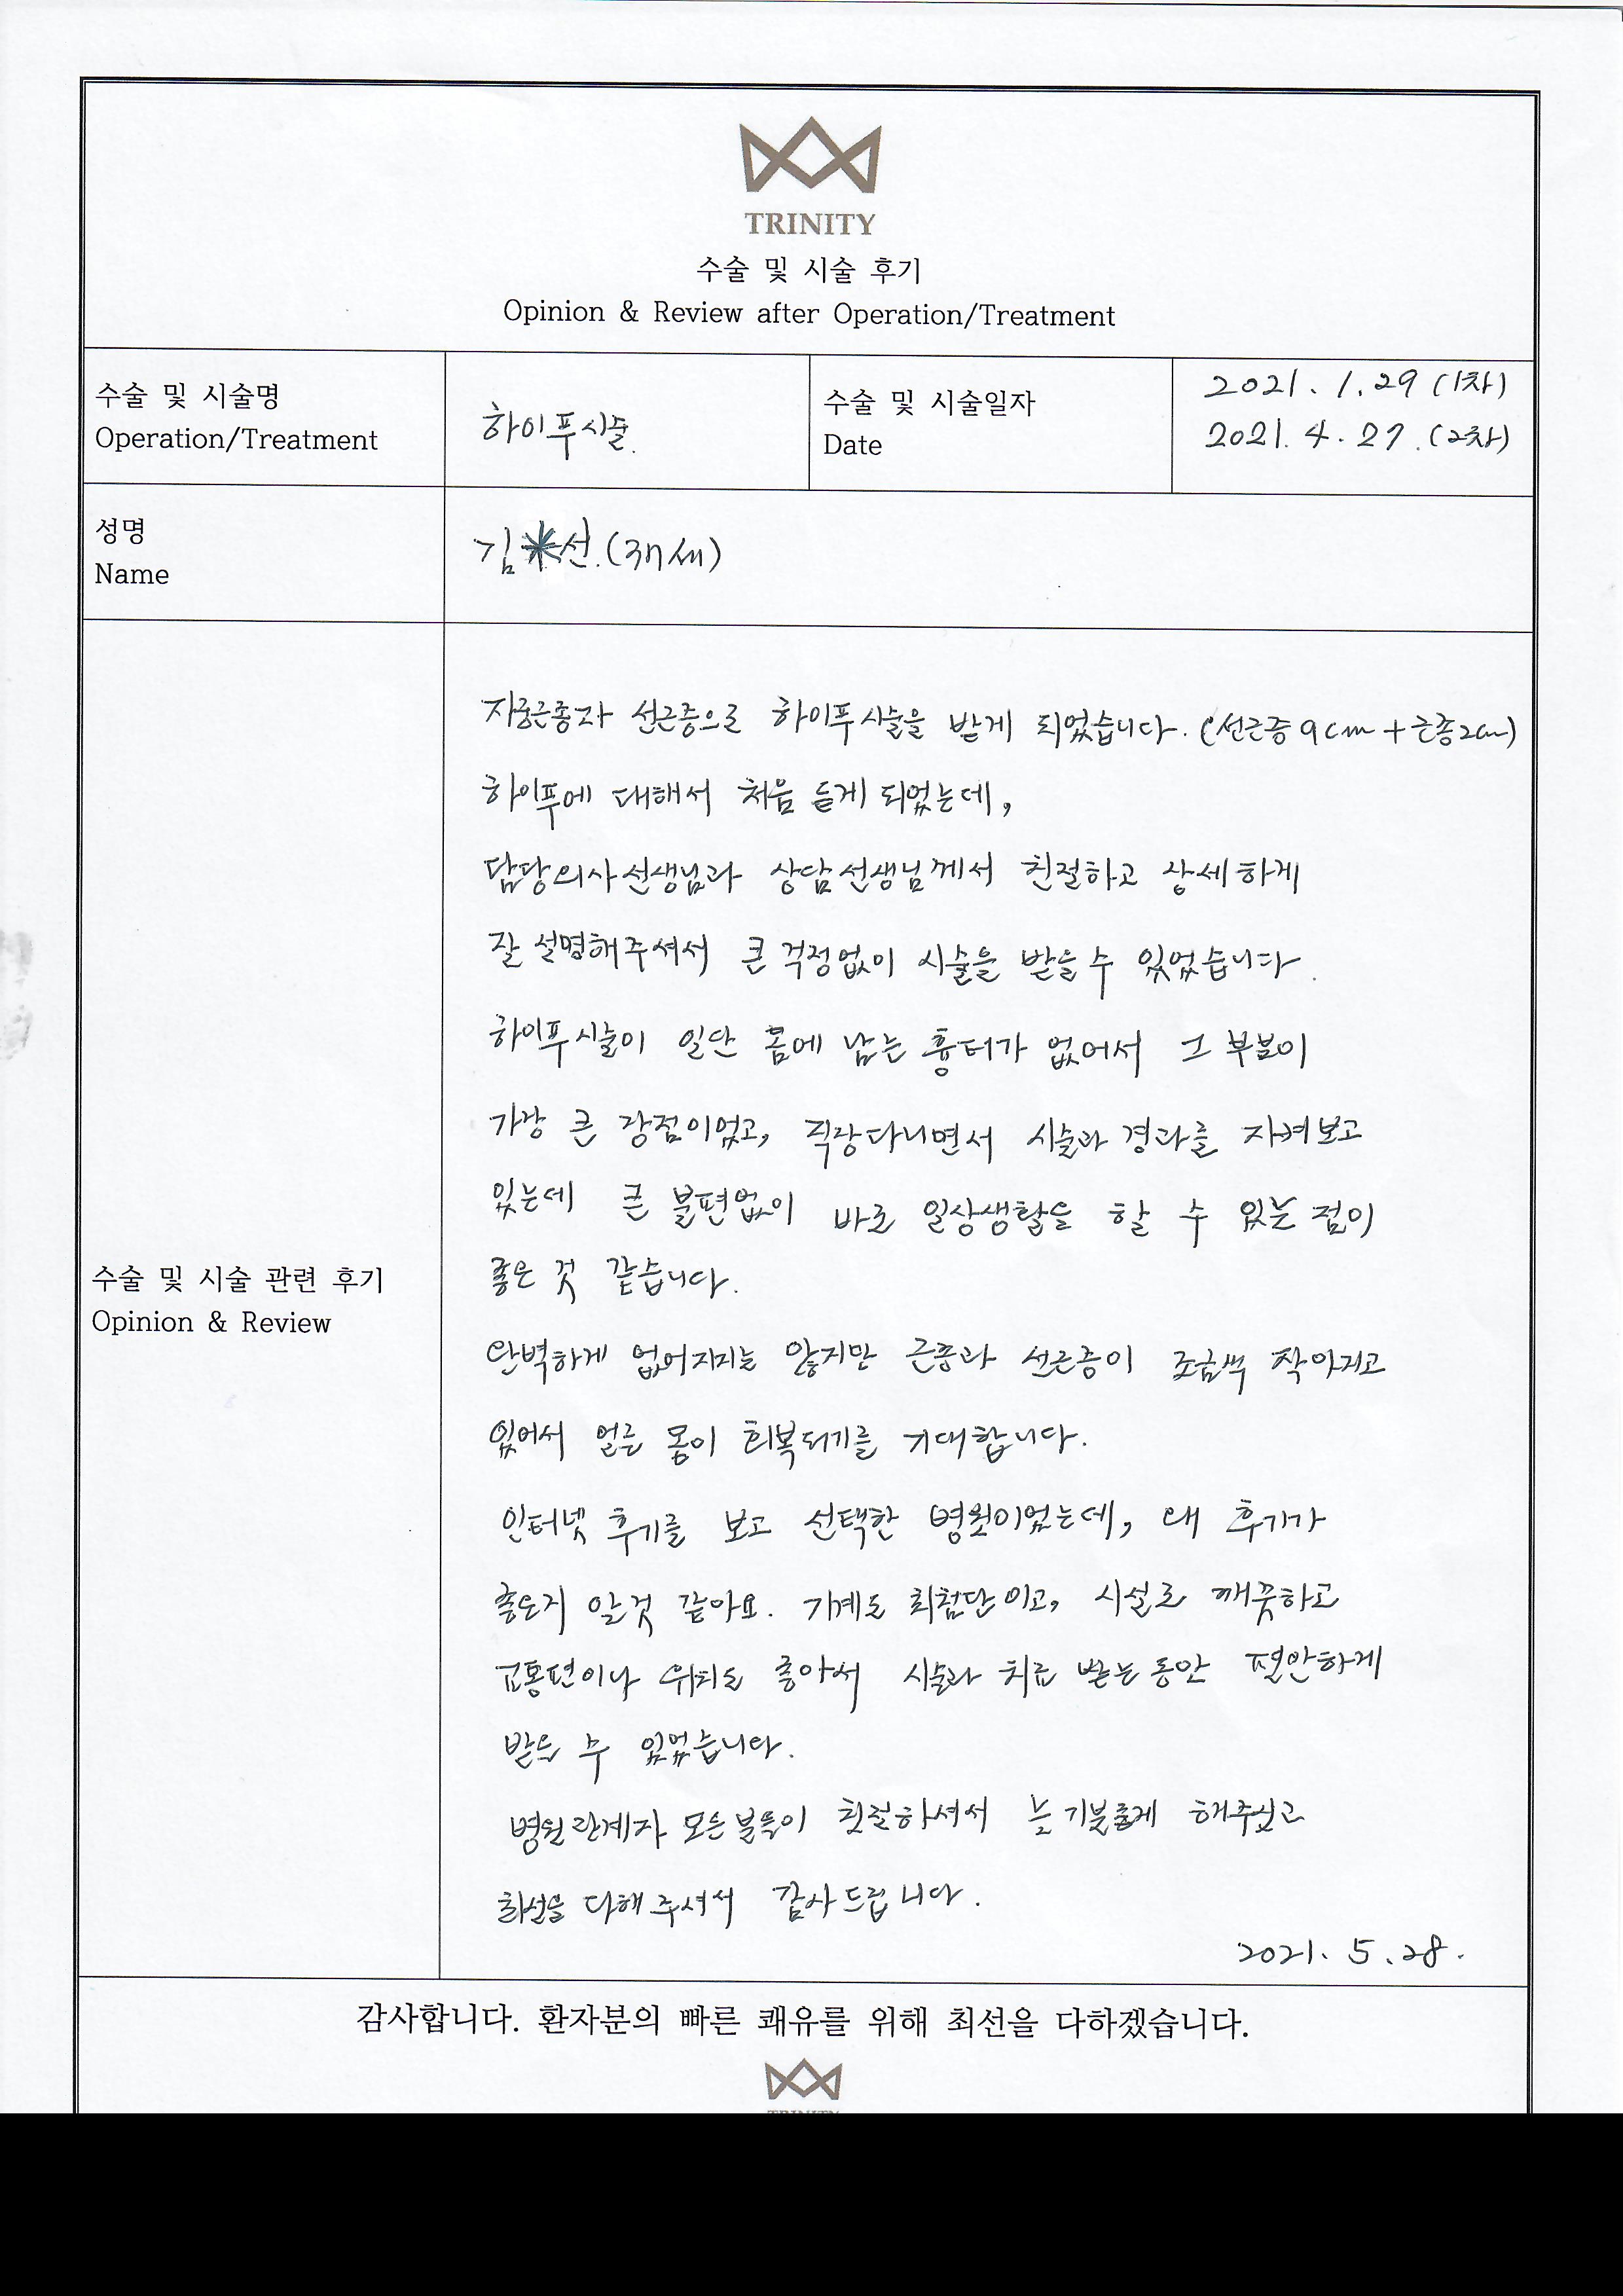 TRINITY
수술 및 시술 후기
Opinion & Review after Operation/Treatment
수술 및 시술명
Operation/Treatment
하이푸시술.
수술 및 시술일자
Date
2021. 1. 29 (1차)
2021. 4. 27. (2차)
성명
Name
김*선.(37세)
수술 및 시술 관련 후기
Opinion & Review
자궁근종과 선근증으로 하이푸시술을 받게 되었습니다. (선근종 9cm + 근종2cm)
하이푸에 대해서 처음 듣게 되었는데,
담당의사선생님과 상담선생님께서 친절하고 상세하게
잘 설명해주셔서 큰 걱정없이 시술을 받을수 있었습니다.
하이푸시술이 일단 몸에 남는 흉터가 없어서 그 부분이
가장 큰 장점이었고, 직장다니면서 시술과 경과를 지켜보고
있는데 큰 불편없이 바로 일상생활을 할 수 있는 점이
좋은 것 같습니다.
완벽하게 없어지지는 않지만 근종과 선근증이 조금씩 작아지고
있어서 얼른 몸이 회복되기를 기대합니다.
인터넷 후기를 보고 선택한 병원이었는데, 왜 후기가
좋은지 알것 같아요. 기계도 최첨단이고, 시설도 깨끗하고
교통편이나 위치도 좋아서 시술과 치료 받는동안 편안하게
받을 수 있었습니다.
병원관계자 모든분들이 친절하셔서 늘 기분좋게 해주셨고
최선을 다해주셔서 감사드립니다.
2021. 5. 28.
감사합니다. 환자분의 빠른 쾌유를 위해 최선을 다하겠습니다.
TRINITY